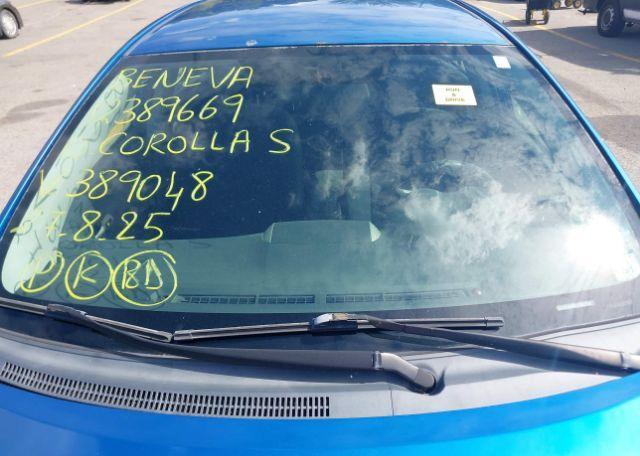 BENEVA
389669
COROLLA S
389048
8.25
P K RD
RUN
&
DRIVE